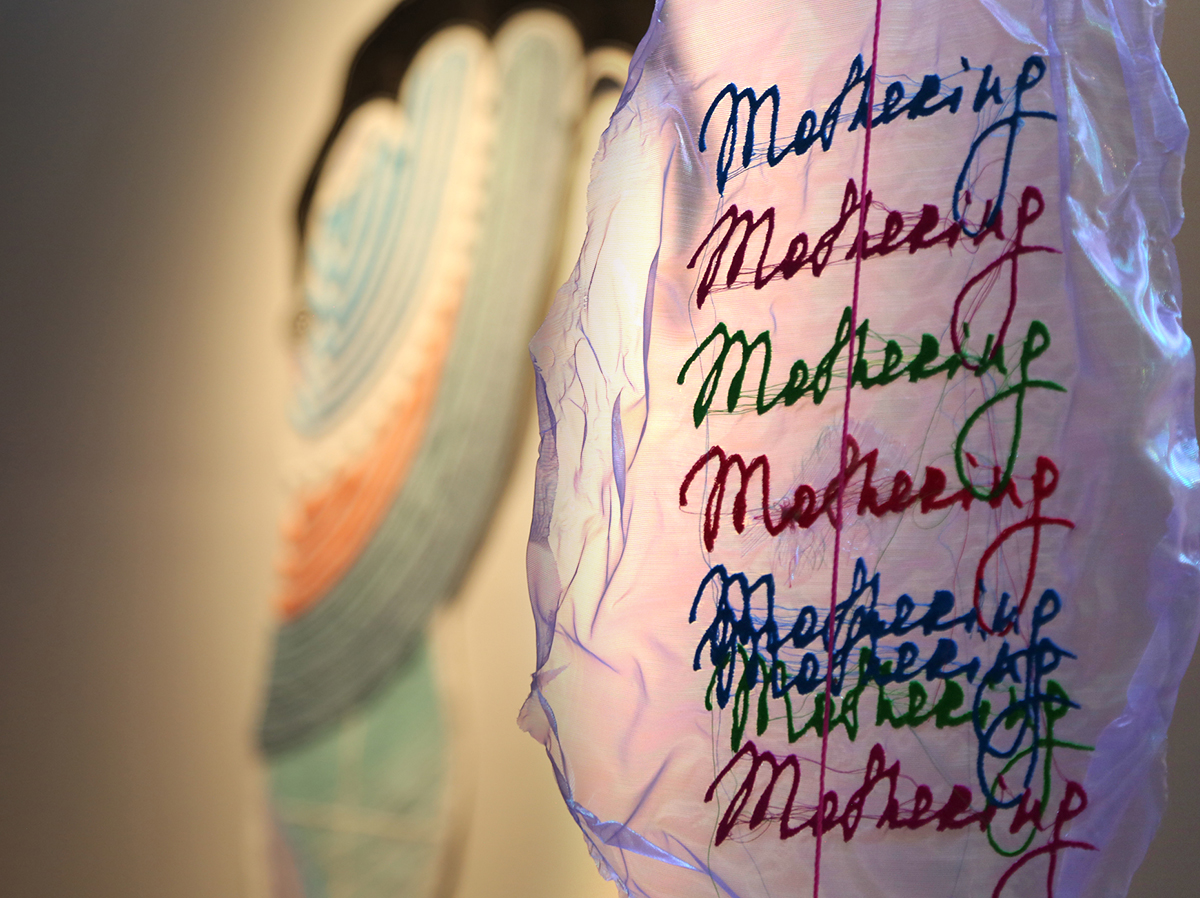 Mothering
Mothering
Mothering
Mothering
Mothering
Mothering
Mothering
Mothering